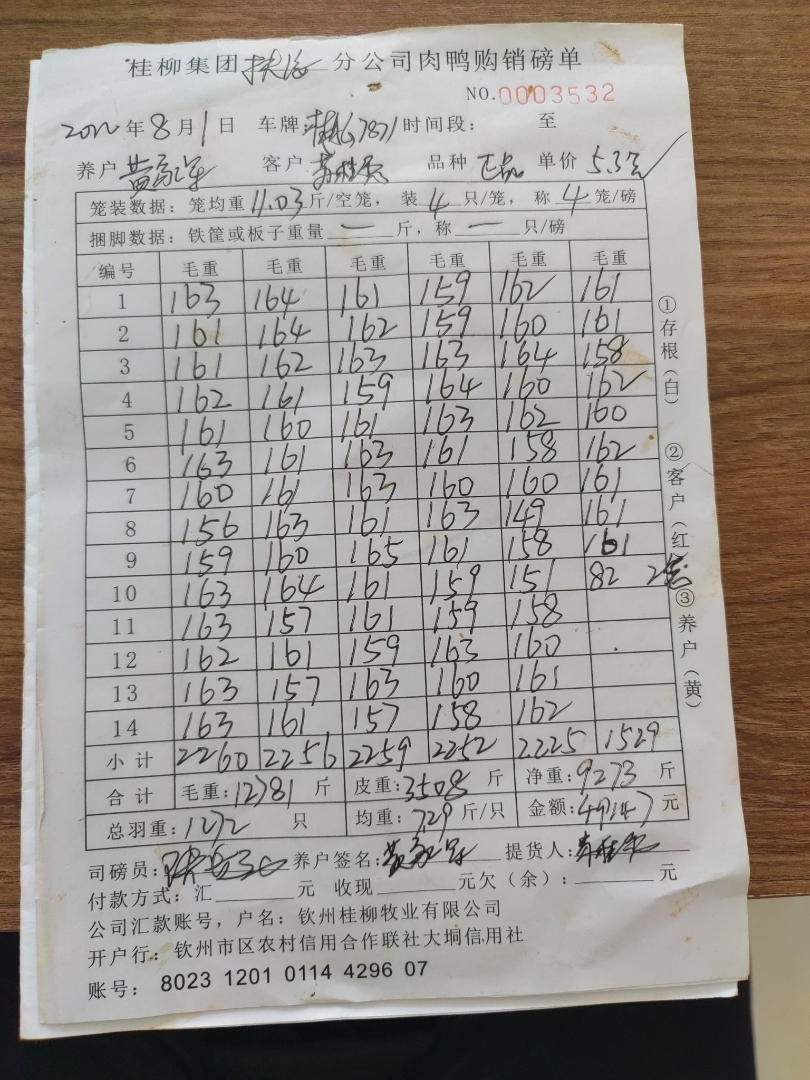 桂柳集团扶绥分公司肉鸭购销磅单
NO.0003532
2022年8月1日 车牌 7871 时间段: 至
养户 客户 品种 正品 单价 5.3元
笼装数据: 笼均重11.03斤/空笼, 装4只/笼, 称4笼/磅
捆脚数据: 铁筐或板子重量一斤, 称一只/磅
编号 毛重 毛重 毛重 毛重 毛重 毛重
1 163 164 161 159 162 161
2 161 164 162 159 160 161
3 161 162 163 163 164 158
4 162 161 159 164 160 162
5 161 160 161 163 162 160
6 163 161 163 161 158 162
7 160 161 163 160 160 161
8 156 163 161 163 149 161
9 159 160 165 161 158 161
10 163 164 161 159 151 82 2笼
11 163 157 161 159 158
12 162 161 159 163 160
13 163 157 163 160 161
14 163 161 157 158 162
小计 2260 2256 2259 2252 2225 1529
合计 毛重:12781斤 皮重:3508斤 净重:9273斤
总羽重:1272只 均重:7.29斤/只 金额:49147元
司磅员: 养户签名: 提货人:
付款方式: 汇 元 收现 元欠(余): 元
公司汇款账号, 户名: 钦州桂柳牧业有限公司
开户行: 钦州市区农村信用合作联社大垌信用社
账号: 8023 1201 0114 4296 07
①存根(白) ②客户(红) ③养户(黄)